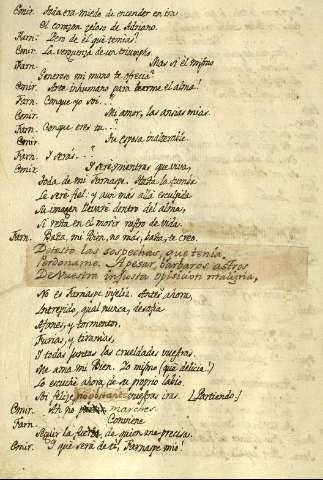 Emir. Toda era miedo de encender en ira
El corazon zeloso de Adriano.
Farn. Pero de él qué temias?
Emir. La venganza de un triumpho.
Farn. Mas si él mismo
Generoso mi mano te ofrecia?
Emir. Arte inhumano para leerme el alma!
Farn. Conque yo soi...?
Emir. Mi amor, las ansias mias.
Farn. Conque eres tu...?
Emir. Tu esposa inalterable.
Farn. Y serás...?
Emir. Y seré, mientras que viva,
Toda de mi Farnaspe. Hasta la tumba
Le seré fiel: y aun mas allá esculpida
Su imagen llevaré dentro del alma,
Si resta en el morir rastro de vida.
Farn. Basta, mi Bien, no más, basta, te creo.
Detesto las sospechas, que tenia,
Perdoname. A pesar, barbaros astros
De vuestra infausta oposicion maligna,
No es Farnaspe infeliz. Antes ahora,
Intrepido, qual nunca, desafia
Afanes, y tormentos,
Furias, y tiranias,
Y todas juntas las crueldades vuestras.
Me ama mi Bien. Lo mismo (qué delicia!)
Lo escuché ahora, de su propio labio.
Soi felize, no obstante vuestras iras. [Partiendo.]
Emir. Ah no marches.
Farn. Conviene
Seguir la fuerza, de quien me precisa.
Emir. I qué será de ti, Farnaspe mio!